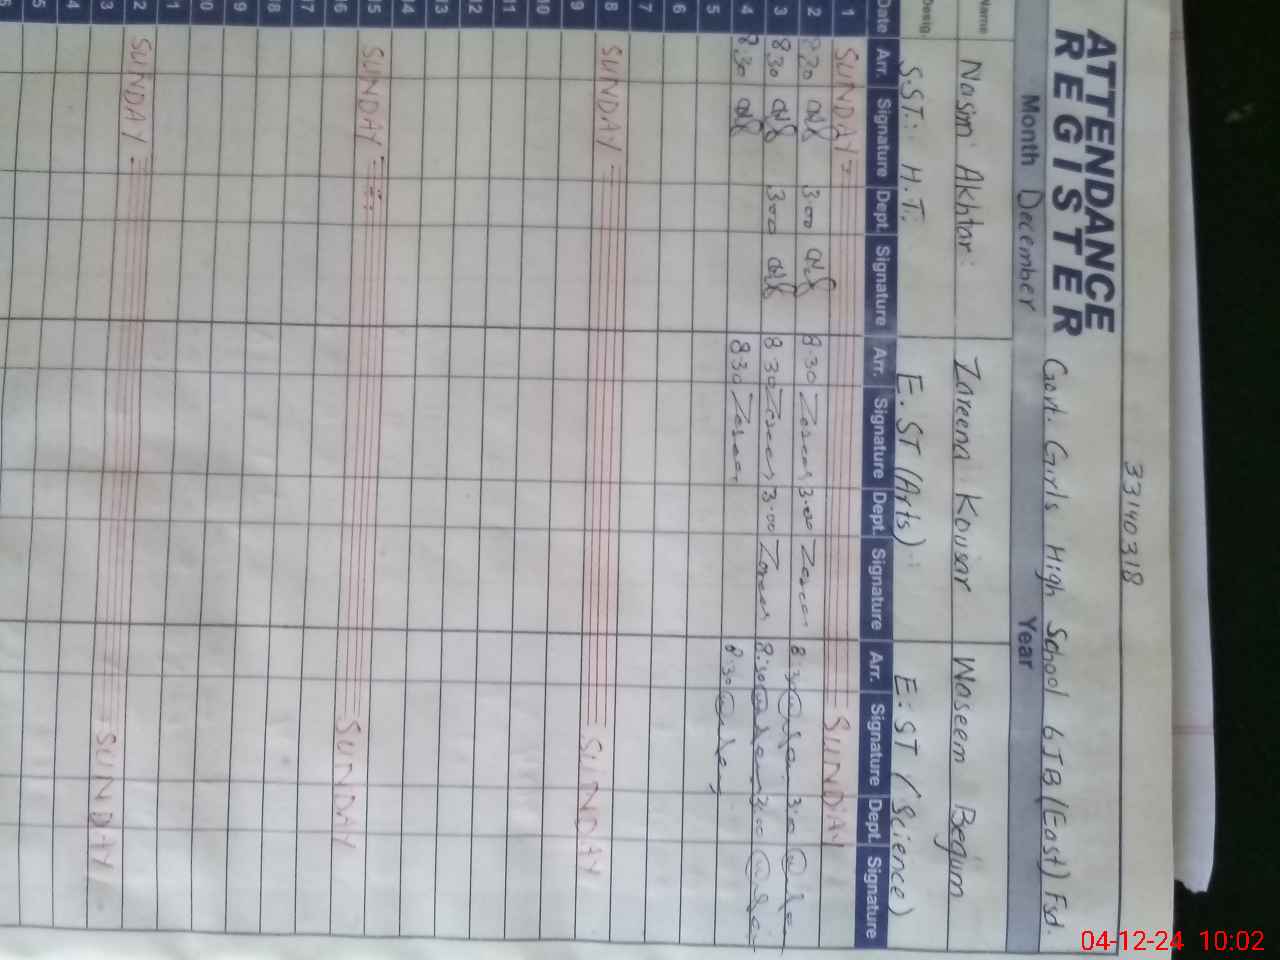 33140318
ATTENDANCE
REGISTER Govt. Girls High School 6JB (East) Fsd.
Month December Year
Name Nasim Akhtar Zareena Kousar Waseem Begum
Desig. S.ST. H.T. E.ST (Arts) E.ST (Science)
Date Arr. Signature Dept. Signature Arr. Signature Dept. Signature Arr. Signature Dept. Signature
1 SUNDAY SUNDAY
2 8.30 3.00 8.30 3.00 8:30
3 8.30 3.00 8.30 3.00 8:30 3:00
4 8.30 8.30 8.30
5
6
7
8 SUNDAY SUNDAY
9
10
11
12
13
14
15 SUNDAY SUNDAY
16
17
18
19
20
21
22 SUNDAY SUNDAY
23
24
25
04-12-24 10:02